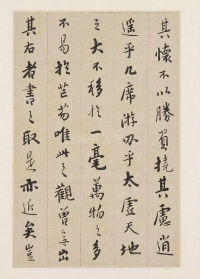 其懷不以勝負撓其慮逍
遙乎几席游乎太虛天地
之大不移於一毫萬物之多
不易於芒芴唯此之觀曾無出
其右者書之取是亦近矣豈